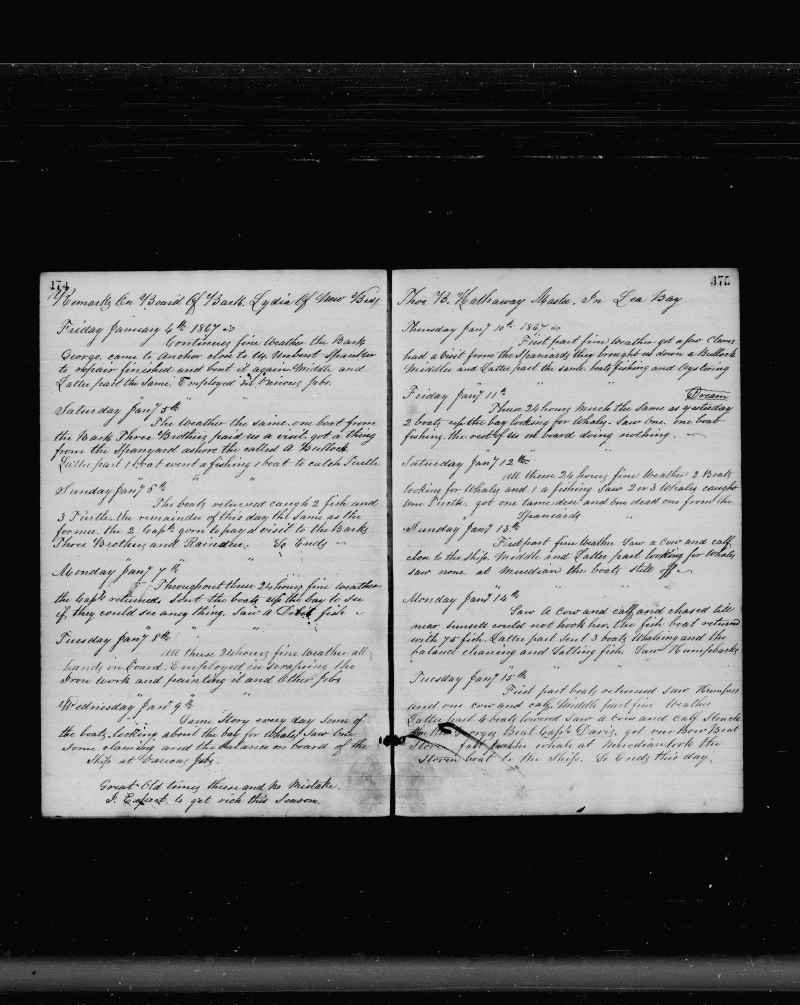 174
Remarks On Board Of Bark. Lydia Of New Bed
Friday January 4th 1867
Continues fine Weather the Bark
George. came to Anchor close to us, Unbent Spanker
to repair finished and bent it again. Middle and
Latter part the Same, Employed in various Jobs.
Saturday Jany 5th
The Weather the same. one boat from
the Bark Three Brothers paid us a visit. got a thing
from the Spanyard ashore the called A Bullock.
Latter part 1 boat went a fishing 1 boat to catch Turtle
Sunday Jany 6th " "
The boats returned caugh 2 fish and
3 Turtle. the remainder of this day the Same as the
former. the 2 Capts gorn to pay a visit to the Barks
Three Brothers and Raindeer. So Ends
Monday Jany 7th
Throughout these 24 hours fine weather
the Capts returned, sent the boats up the bay to see
if they could see aney thing, Saw A Devil fish
Tuesday Jany 8th " "
All these 24 hours fine Weather all
hands on board. Employed in Scrapeing the
Iron work and painting it and Other Jobs
Wednesday Jany 9th
Same Story every day some of
the boats looking about the bay for Whales, Saw One.
some claming and the balance on board of the
Ship at Various Jobs.
Great Old times these and No Mistake.
I Expect to get rich this Season.
175
Thos B. Hathaway Master. In Lea Bay
Thursday Jany 10th 1867
First part fine Weather got a few Clams
had a visit from the Spaniards they brought us down a Bullock
Middler and Latter part the same. boats fishing and Oystering
Friday Jany 11th " Dream
These 24 hours Much the same as yesterday
2 boats up the bay looking for Whales. Saw One. one boat
fishing. the rest of us on board doing nothing.
Saturday Jany 12th "
All these 24 hours fine Weather 2 Boats
looking for Whales and 1 a fishing Saw 2 or 3 Whales caught
One Turtle. got one dier and one dead one from the
Spaniards
Sunday Jany 13th
First part fine Weather Saw a Cow and calf
close to the Ship. Middle and Latter part looking for Whales
saw none. at Meredian the boats still off
Monday Jany 14th
Saw A Cow and calf and chased till
near Sunsett could not hook her. the fish boat returned
with 75 fish. Latter part Sent 3 boats Whaleing and the
balance cleaning and Salting fish. Saw Humpbacks
Tuesday Jany 15th " "
First part boats returned Saw
and one cow and calf. Middle part fine Weather
Latter part 4 boats lowered Saw a Cow and calf Struck
Georges Boat Capt Davis. got our Bow Boat
Stoven fast to the whale at Meredian took the
Stoven boat to the Ship. So Ends this day.